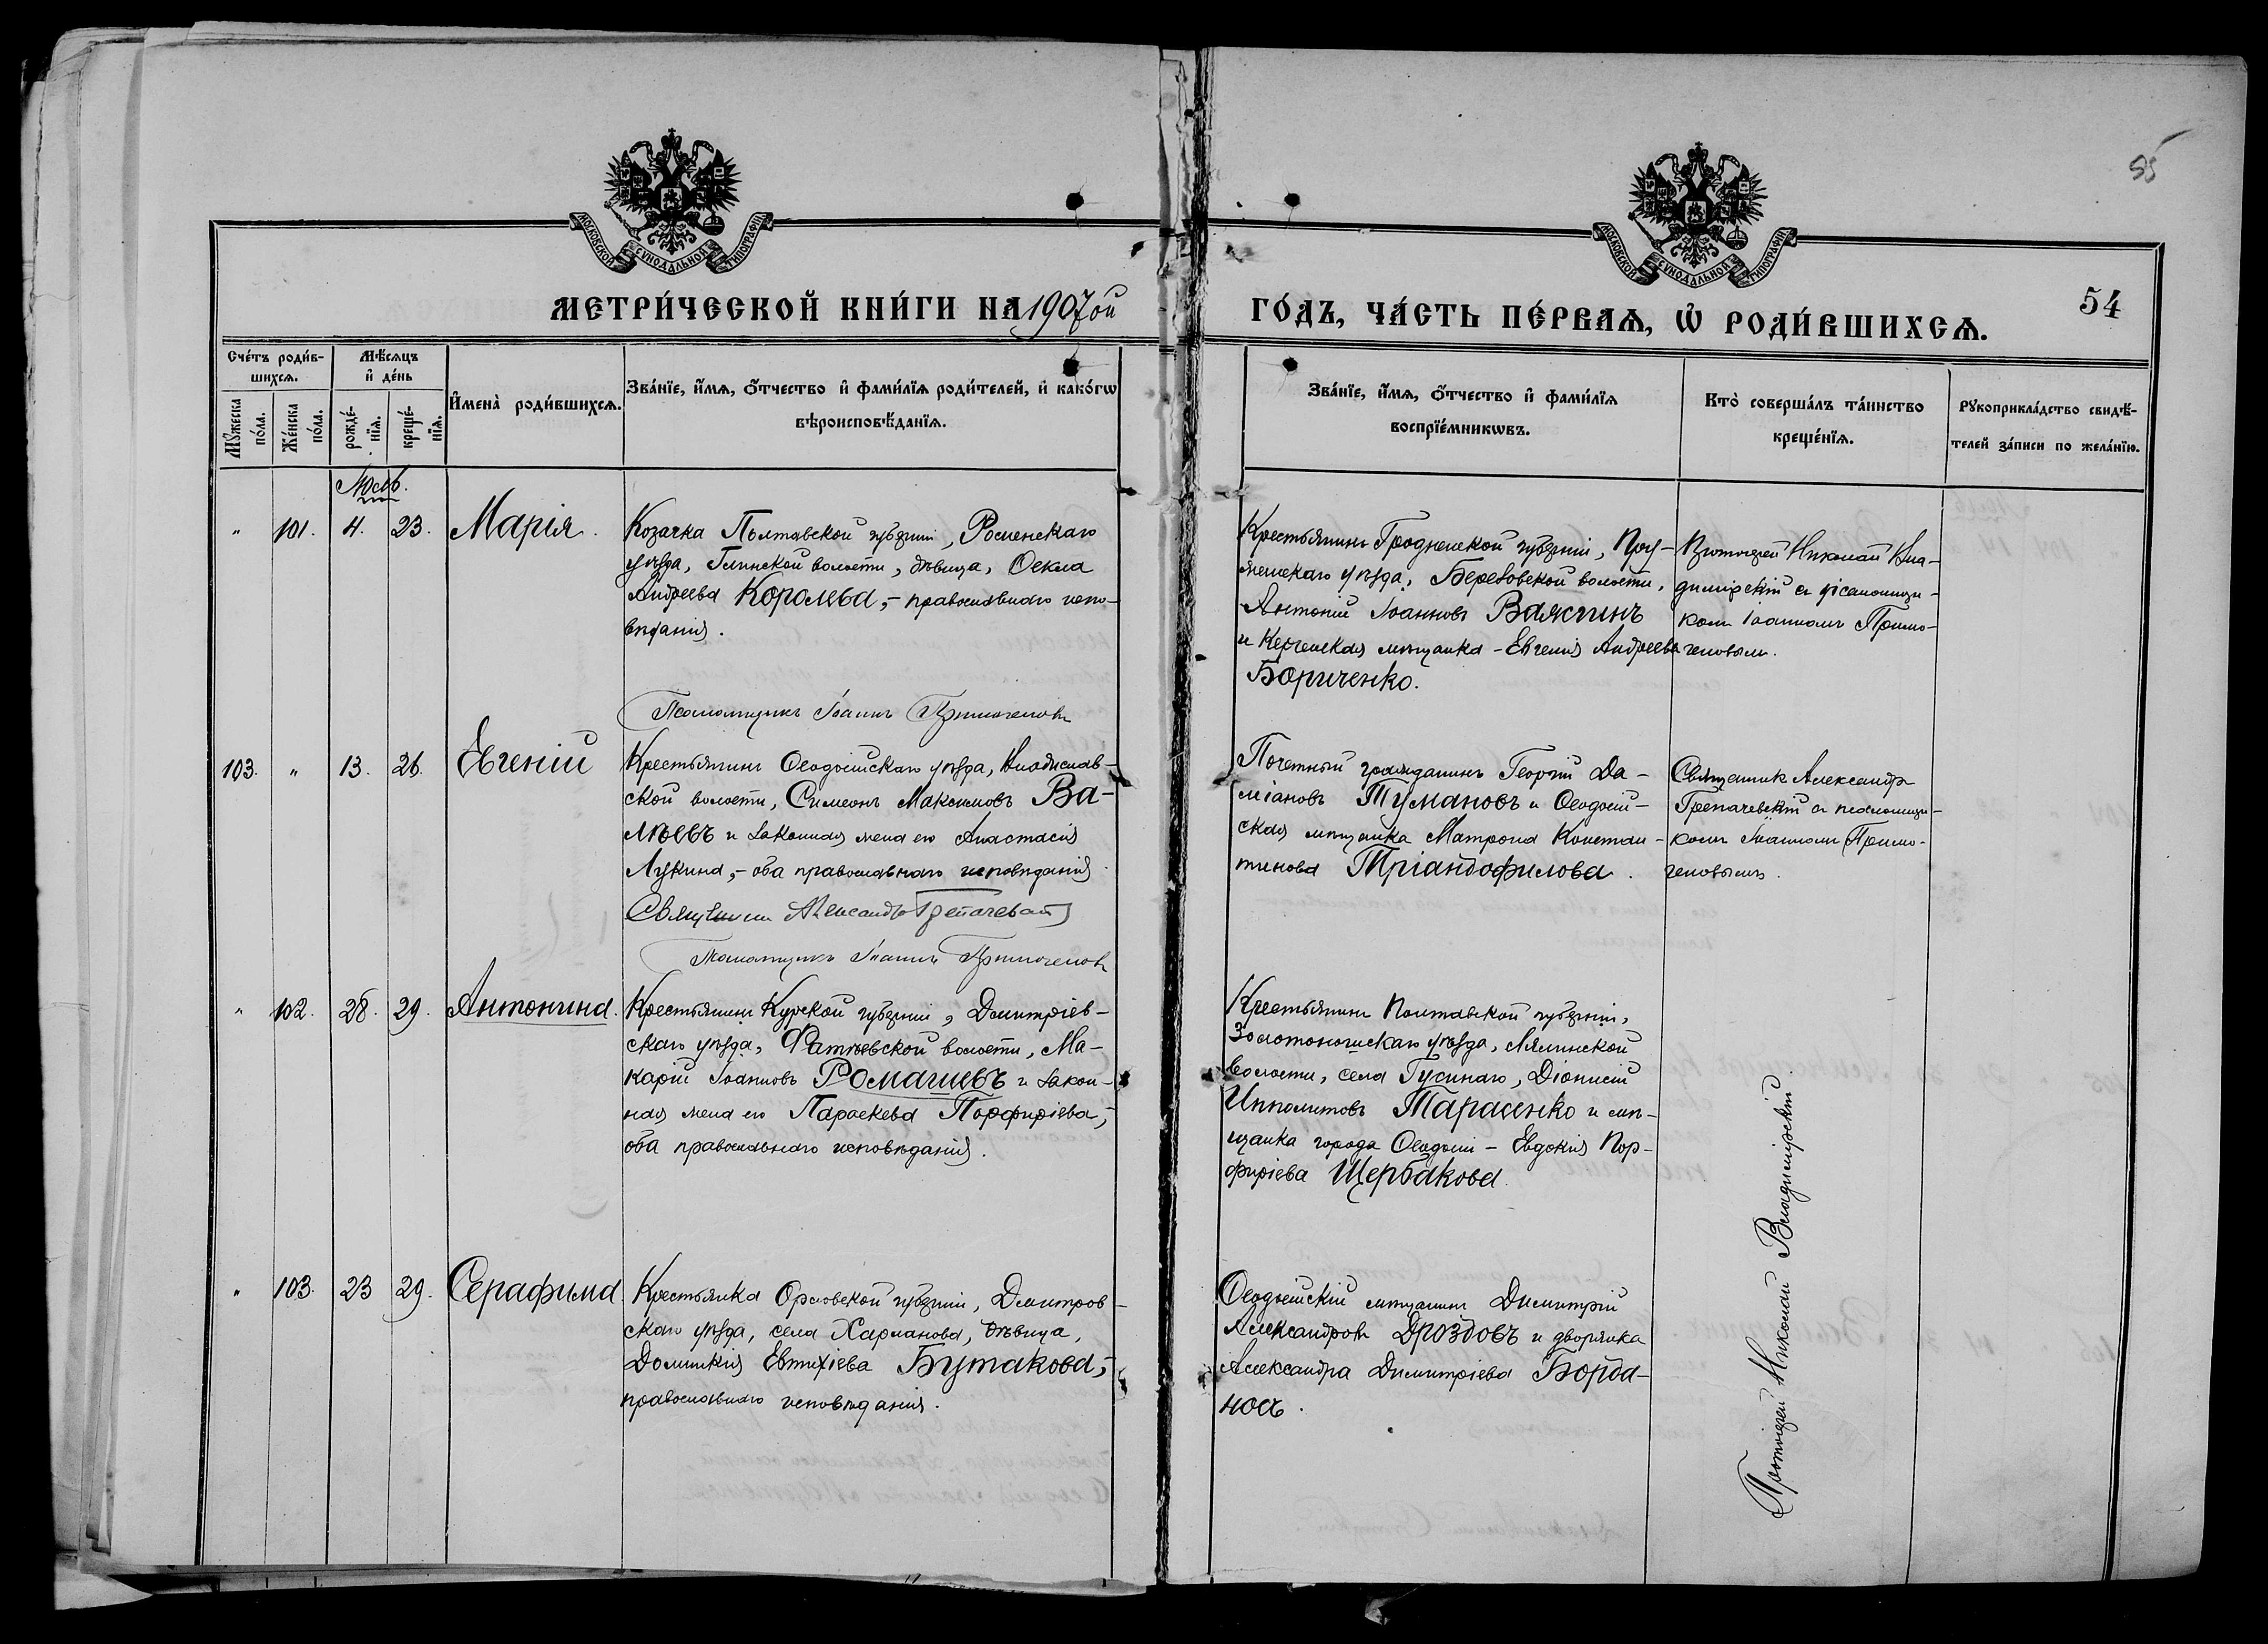 55
МОСКОВСКОЙ СѴНОДАЛЬНОЙ ТИПОГРАФІИ
МОСКОВСКОЙ СѴНОДАЛЬНОЙ ТИПОГРАФІИ
МЕТРИ́ЧЕСКОЙ КНИ́ГИ НА 1907ой
ГО́ДЪ, ЧА́СТЬ ПЕ́РВАѦ, Ѽ РОДИ́ВШИХСѦ.
54
Сче́тъ роди́в-
шихсѧ.
Мѣ́сѧцъ
и҆ де́нь
Мꙋ́жеска по́ла.
Же́нска по́ла.
рожде́-
нїѧ.
креще́-
нїѧ.
И҆мена̀ роди́вшихсѧ.
Зва́нїе, и҆́мѧ, ѻ҆́тчество и҆ фами́лїѧ роди́телей, и҆ како́гѡ
вѣроисповѣ́данїѧ.
Зва́нїе, и҆́мѧ, ѻ҆́тчество и҆ фами́лїѧ
воспрїе́мникѡвъ.
Кто̀ соверша́лъ та́инство
креще́нїѧ.
Рꙋкоприкла́дство свидѣ́-
телей за́писи по жела́нїю.
„ 101. 4. 23. Марія.
Козачка Полтавской губерніи, Роменскаго
уѣзда, Глинской волости, дѣвица, Ѳекла
Андреева Королева,- православнаго испо-
вѣданія.
Крестьянинъ Гродненской губерніи, Пру-
жанскаго уѣзда, Березовской волости,
Антоній Іоанновъ Важгинъ
и Керченская мѣщанка - Евгенія Андреева
Бориченко.
Протоіерей Николай Вла-
димірскій съ псаломщи-
комъ Іоанномъ Примо-
геновымъ.
Псаломщикъ Іоаннъ Примогеновъ
103. „ 13. 26. Евгеній
Крестьянинъ Ѳеодосійскаго уѣзда, Владислав-
ской волости, Симеонъ Максимовъ Ва-
лѣевъ и законная жена его Анастасія
Лукина,- оба православнаго исповѣданія.
Почетный гражданинъ Георгій Да-
міановъ Тумановъ и Ѳеодосій-
ская мѣщанка Матрона Констан-
тинова Тріандофилова.
Священникъ Александръ
съ псаломщи-
комъ Іоанномъ Примо-
геновымъ.
Священникъ Александръ
Псаломщикъ Іоаннъ Примогеновъ
„ 102. 28. 29. Антонина.
Крестьянинъ Курской губерніи, Дмитріев-
скаго уѣзда, Фатѣевской волости, Ма-
карій Іоанновъ Ромашевъ и закон-
ная жена его Параскева Порфиріева,-
оба православнаго исповѣданія.
Крестьянинъ Полтавской губерніи,
Золотоношскаго уѣзда, Лялинской
волости, села Гусинаго, Діонисій
Ипполитовъ Тарасенко и мѣ-
щанка города Ѳеодосіи - Евдокія Пор-
фиріева Щербакова.
„ 103. 23 29. Серафима
Крестьянка Орловской губерніи, Дмитров-
скаго уѣзда, села Харланова, дѣвица,
Домникія Евтихіева Бутакова,-
православнаго исповѣданія.
Ѳеодосійскій мѣщанинъ Димитрій
Александровъ Дроздовъ и дворянка
Александра Димитріева Борда-
носъ.
Протоіерей Николай Владимірскій.